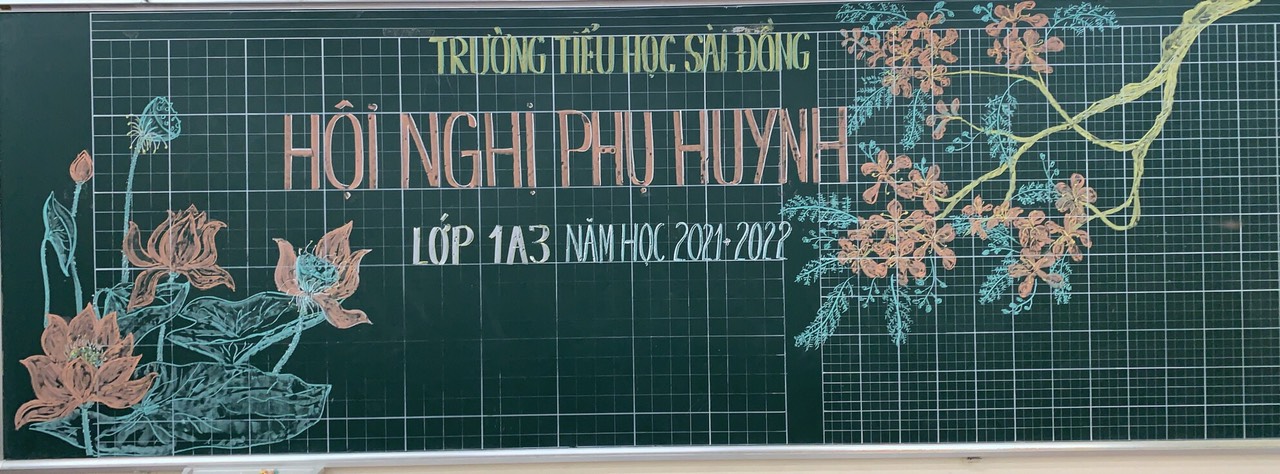 TRƯỜNG TIỂU HỌC SÀI ĐỒNG
HỘI NGHỊ PHỤ HUYNH
LỚP 1A3 NĂM HỌC 2021-2022